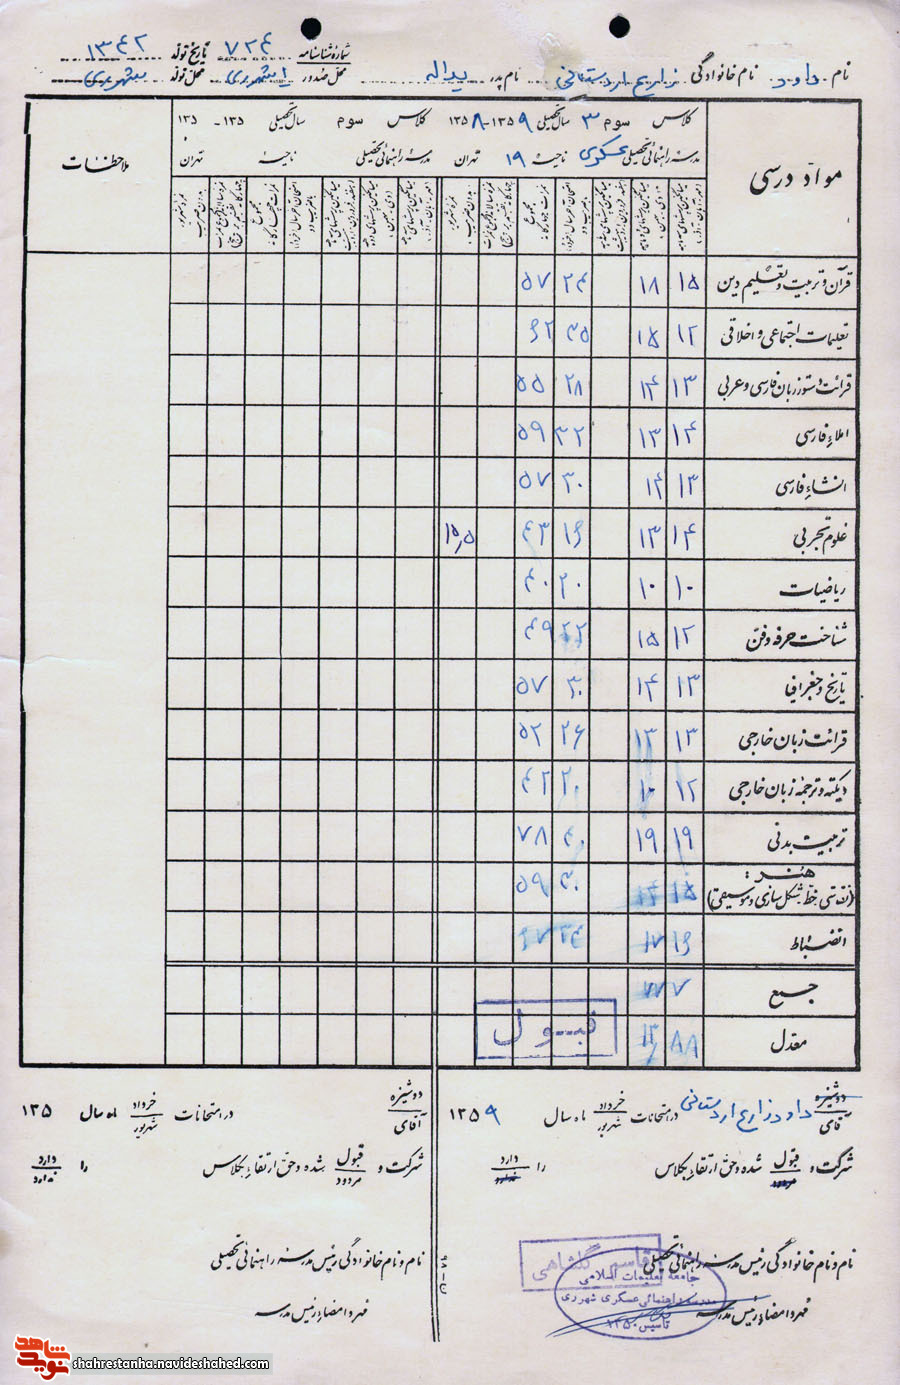 نام داود نام خانوادگی زارع اردستانی نام پدر یداله شمارهٔ شناسنامه ۷۲۴ تاریخ تولد ۱۳۴۲
محل صدور شهرری محل تولد شهرری
مواد درسی
کلاس سوم ۳ سال تحصیلی ۱۳۵۹-۱۳۵۸
مدرسه راهنمائی تحصیلی عسکری ناحیه ۱۹ تهران
کلاس سوم سال تحصیلی ۱۳۵-۱۳۵
مدرسه راهنمائی تحصیلی ناحیه تهران
ملاحظات
قرآن و تربیت و تعلیم دین ۱۵ ۱۸ ۲۴ ۵۷
تعلیمات اجتماعی و اخلاقی ۱۲ ۱۵ ۳۵ ۶۲
قرائت دستور زبان فارسی و عربی ۱۳ ۱۴ ۲۸ ۵۵
املاء فارسی ۱۴ ۱۳ ۳۲ ۵۹
انشاء فارسی ۱۳ ۱۴ ۳۰ ۵۷
علوم تجربی ۱۴ ۱۳ ۱۶ ۴۳ ۱۵٫۵
ریاضیات ۱۰ ۱۰ ۲۰ ۴۰
شناخت حرفه و فن ۱۲ ۱۵ ۲۲ ۴۹
تاریخ و جغرافیا ۱۳ ۱۴ ۳۰ ۵۷
قرائت زبان خارجی ۱۳ ۱۳ ۲۶ ۵۲
دیکته و ترجمه زبان خارجی ۱۲ ۱۰ ۲۰ ۴۲
تربیت بدنی ۱۹ ۱۹ ۴۰ ۷۸
هنر:
(نقاشی خط شکل سازی و موسیقی) ۱۵ ۱۴ ۳۰ ۵۹
انضباط ۱۶ ۱۷ ۳۴ ۶۷
جمع
معدل
قبول
دوشیزه
آقای داود زارع اردستانی در امتحانات خرداد شهریور ماه سال ۱۳۵۹
شرکت و قبول مردود شده و حق ارتقاء بکلاس را دارد ندارد
نام و نام خانوادگی رئیس مدرسه راهنمائی تحصیلی
قاسم گلشاهی
مهر و امضاء رئیس مدرسه
جامعه تعلیمات اسلامی
مدرسه راهنمائی عسکری شهرری
تاسیس ۱۳۵۰
دوشیزه
آقای در امتحانات خرداد شهریور ماه سال ۱۳۵
شرکت و قبول مردود شده و حق ارتقاء بکلاس را دارد ندارد
نام و نام خانوادگی رئیس مدرسه راهنمائی تحصیلی
مهر و امضاء رئیس مدرسه
نوید شاهد
shahrestanha.navideshahed.com